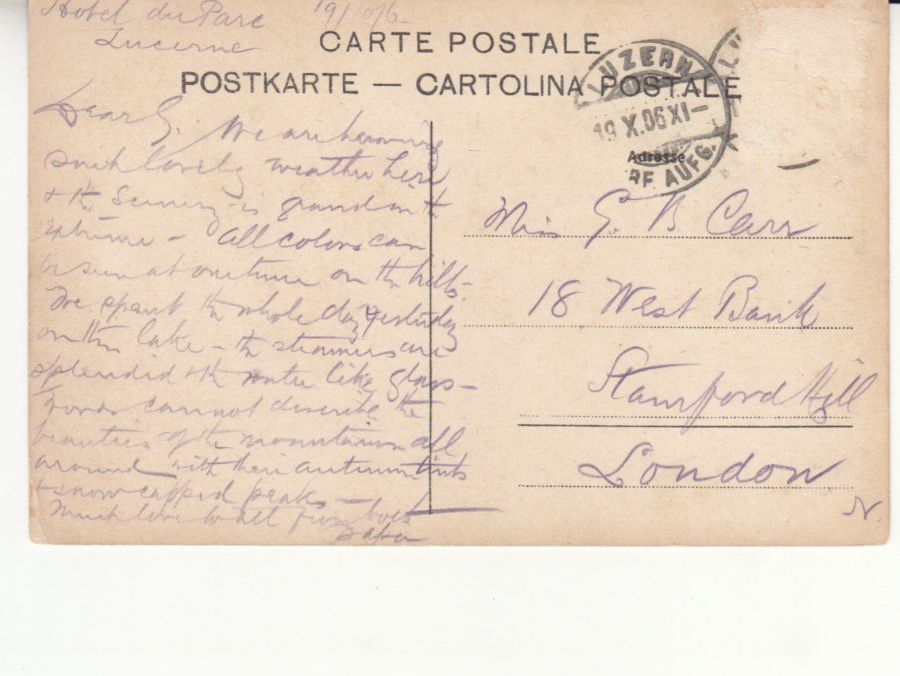 Hotel du Parc 19/10/6
Lucerne
CARTE POSTALE
POSTKARTE — CARTOLINA POSTALE
LUZERN
19 X.06 XI—
BRF AUFG.
Adresse
Dear G. We are having
such lovely weather here
& the scenery is grand in the
extreme – All colors can
be seen at one time on the hills.
We spent the whole day yesterday
on the lake – the steamers are
splendid & the water like glass –
Words cannot describe the
beauties of the mountains all
around with their autumn tints
& snow capped peaks –
Much love to all from both
Papa
Miss G. B Carr
18 West Bank
Stamford Hill
London
N.